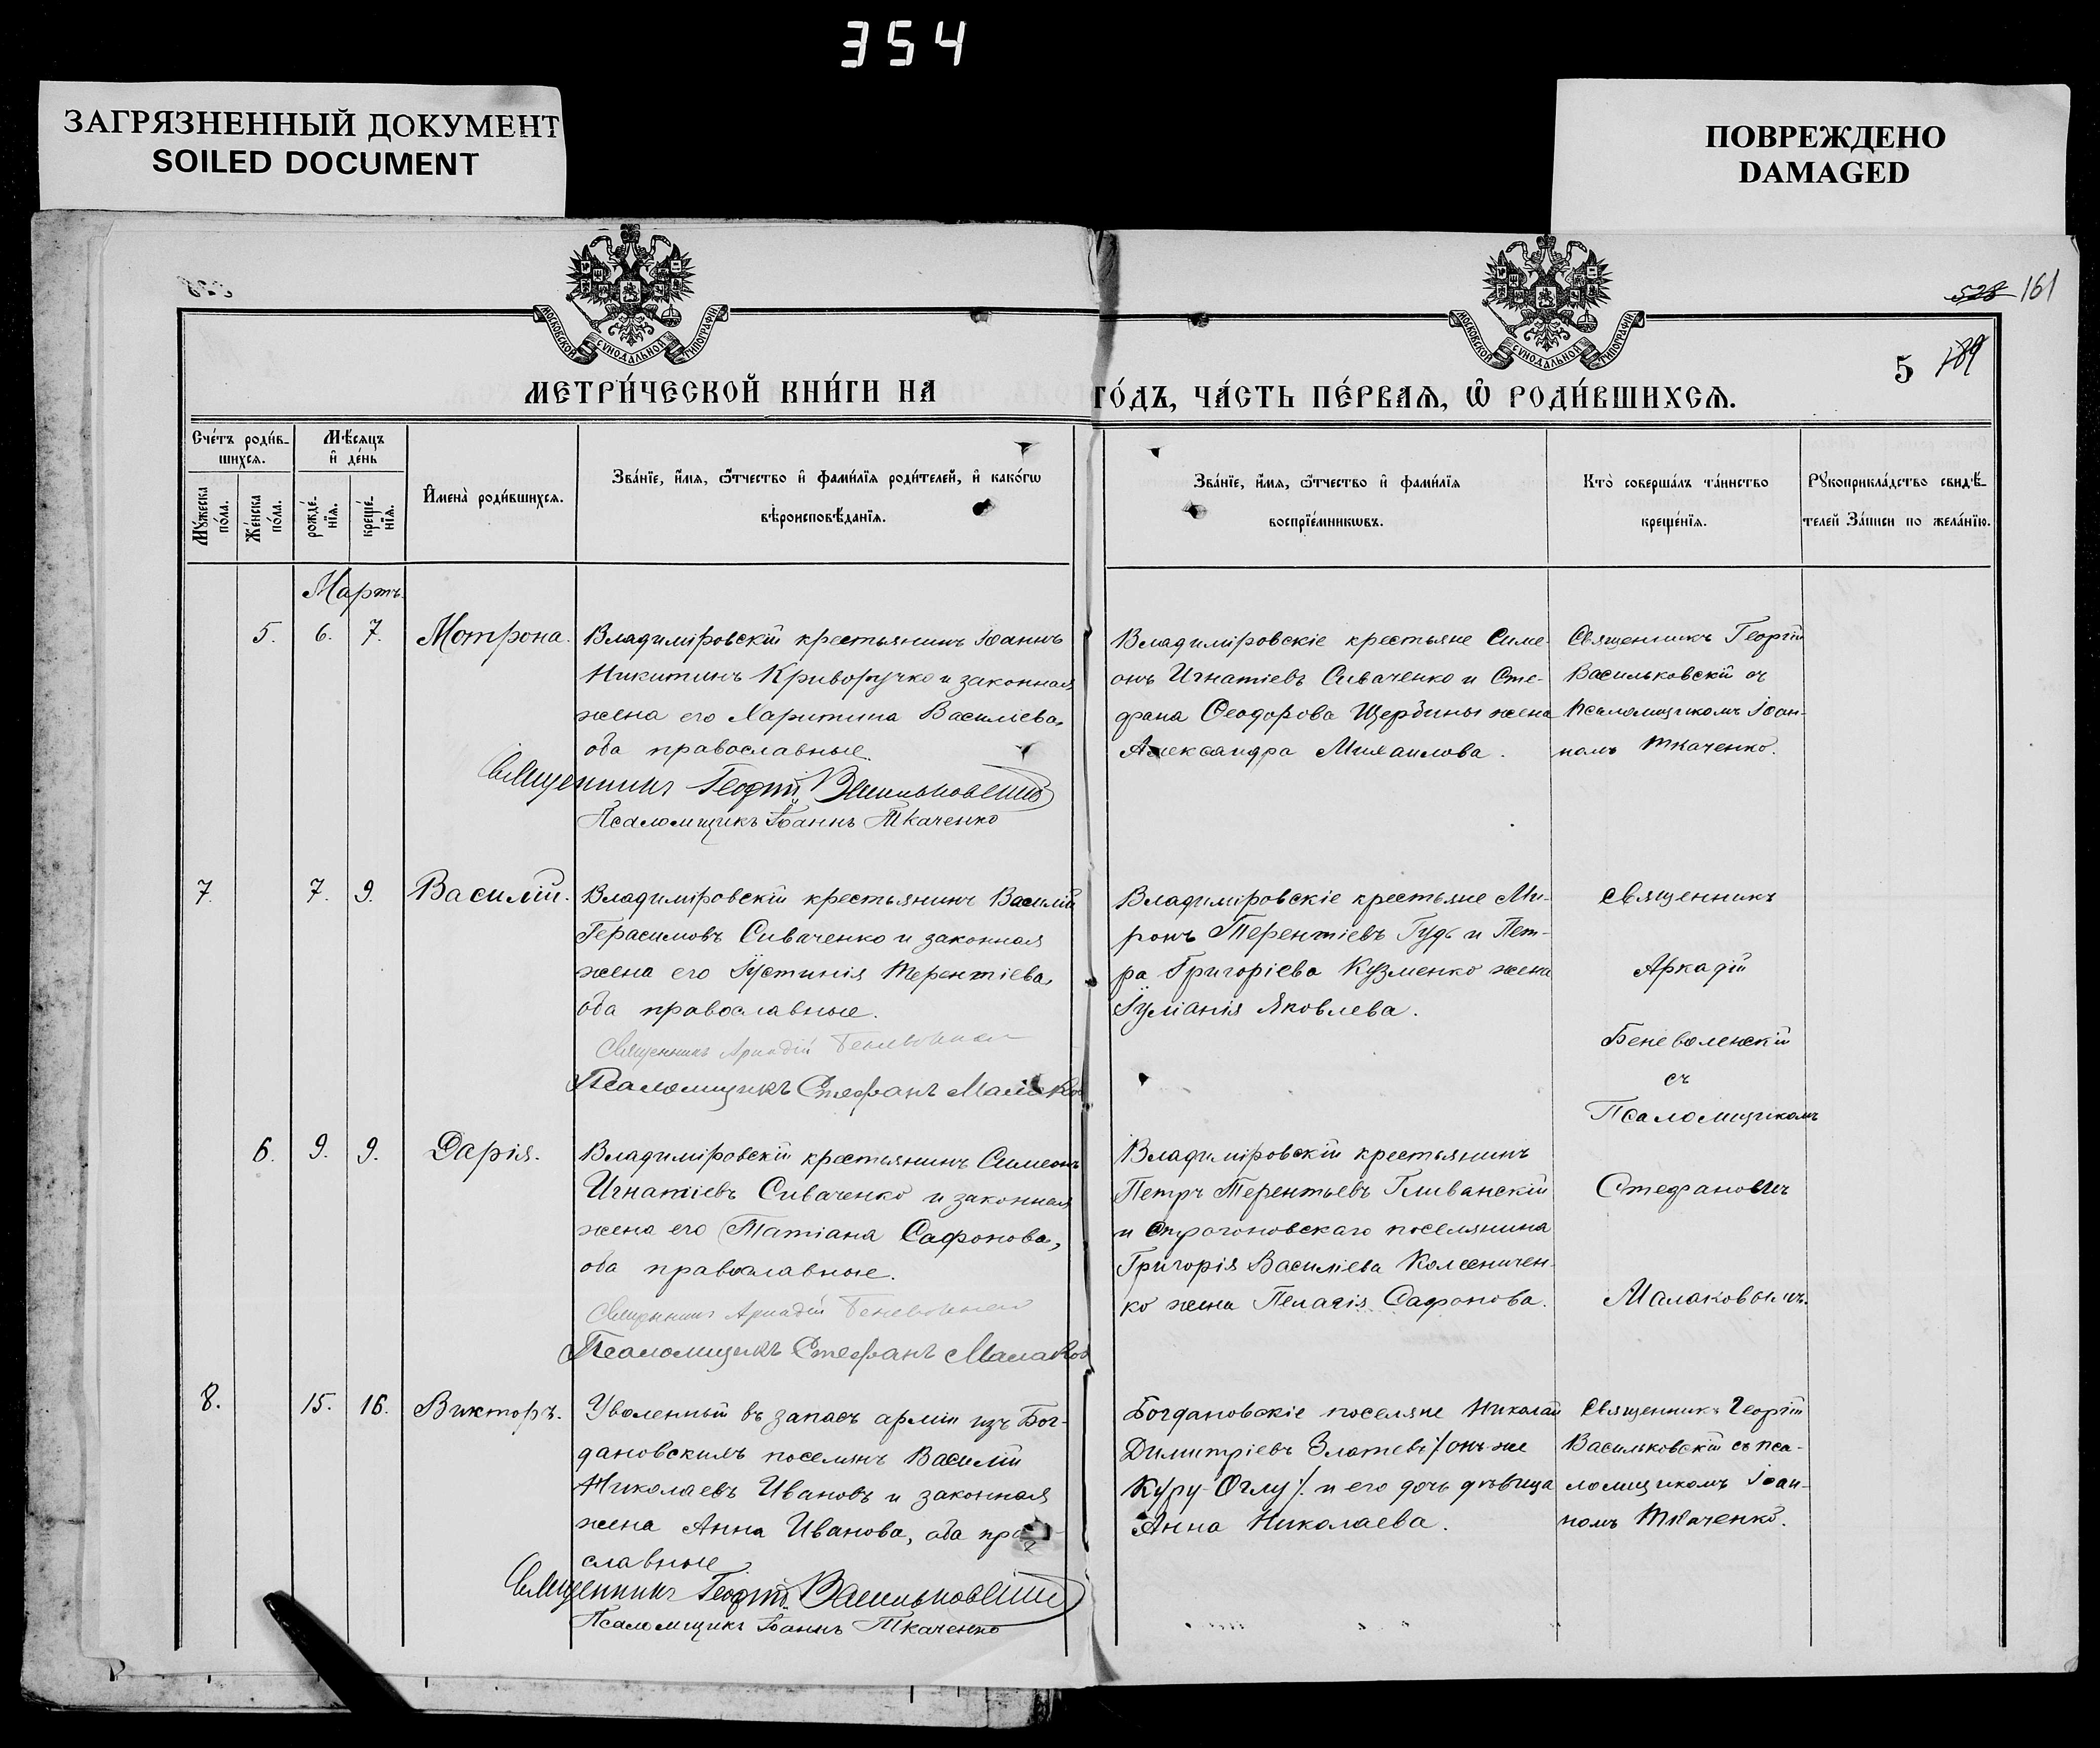 354
ЗАГРЯЗНЕННЫЙ ДОКУМЕНТ
SOILED DOCUMENT
ПОВРЕЖДЕНО
DAMAGED
МОСКОВСКОЙ СѴНОДАЛЬНОЙ ТИПОГРАФІИ
МОСКОВСКОЙ СѴНОДАЛЬНОЙ ТИПОГРАФІИ
528 161
5 189
МЕТРИ́ЧЕСКОЙ КНИ́ГИ НА ГО́ДЪ, ЧА́СТЬ ПЕ́РВАѦ, Ѡ҆ РОДИ́ВШИХСѦ.
Сче́тъ роди́в-
шихсѧ.
Мꙋ́жеска
по́ла.
Же́нска
по́ла.
Мѣ́сѧцъ
и҆ де́нь
рожде́-
нїѧ.
креще́-
нїѧ.
И҆мена̀ роди́вшихсѧ.
Зва́нїе, и҆́мѧ, ѻ҆́тчество и҆ фами́лїѧ роди́телей, и҆ како́гѡ
вѣроисповѣ́данїѧ.
Зва́нїе, и҆́мѧ, ѻ҆́тчество и҆ фами́лїѧ
воспрїе́мникѡвъ.
Кто̀ соверша́лъ та́инство
креще́нїѧ.
Рꙋкоприкла́дство свидѣ́-
телей за́писи по жела́нїю.
Мартъ.
5. 6. 7. Мотрона.
Владиміровскій крестьянинъ Іоаннъ
Никитинъ Криворучко и законная
жена его Харитина Василіева,
оба православные.
Священникъ Георгій Васильковскій
Псаломщикъ Іоаннъ Ткаченко
Владиміровскіе крестьяне Симе-
онъ Игнатіевъ Сиваченко и Сте-
фана Ѳеодорова Щербины жена
Александра Михаилова.
Священникъ Георгій
Васильковскій съ
псаломщикомъ Іоан-
номъ Ткаченко.
7. 7. 9. Василій.
Владиміровскій крестьянинъ Василій
Герасимовъ Сиваченко и законная
жена его Іустинія Терентіева,
оба православные.
Священникъ Аркадій Беневоленскій
Псаломщикъ Стефанъ Малаковъ
Владиміровскіе крестьяне Ми-
ронъ Терентіевъ Гудь и Пет-
ра Григоріева Кузменко жена
Іуліанія Яковлева.
Священникъ
Аркадій
Беневоленскій
съ
Псаломщикомъ
Стефаномъ
Малаковымъ.
6. 9. 9. Дарія.
Владиміровскій крестьянинъ Симеонъ
Игнатіевъ Сиваченко и законная
жена его Татіана Сафонова,
оба православные.
Священникъ Аркадій Беневоленскій
Псаломщикъ Стефанъ Малаковъ
Владиміровскій крестьянинъ
Петръ Терентьевъ Гливанскій
и Строгоновскаго поселянина
Григорія Василіева Колесничен-
ко жена Пелагія Сафонова.
8. 15. 16. Викторъ.
Уволенный въ запасъ арміи изъ Бог-
дановскихъ поселянъ Василій
Николаевъ Ивановъ и законная
жена Анна Иванова, оба право-
славные.
Священникъ Георгій Васильковскій
Псаломщикъ Іоаннъ Ткаченко
Богдановскіе поселяне Николай
Димитріевъ Златевъ /онъ-же
Куру-Оглу/. и его дочь дѣвица
Анна Николаева.
Священникъ Георгій
Васильковскій съ пса-
ломщикомъ Іоан-
номъ Ткаченко.